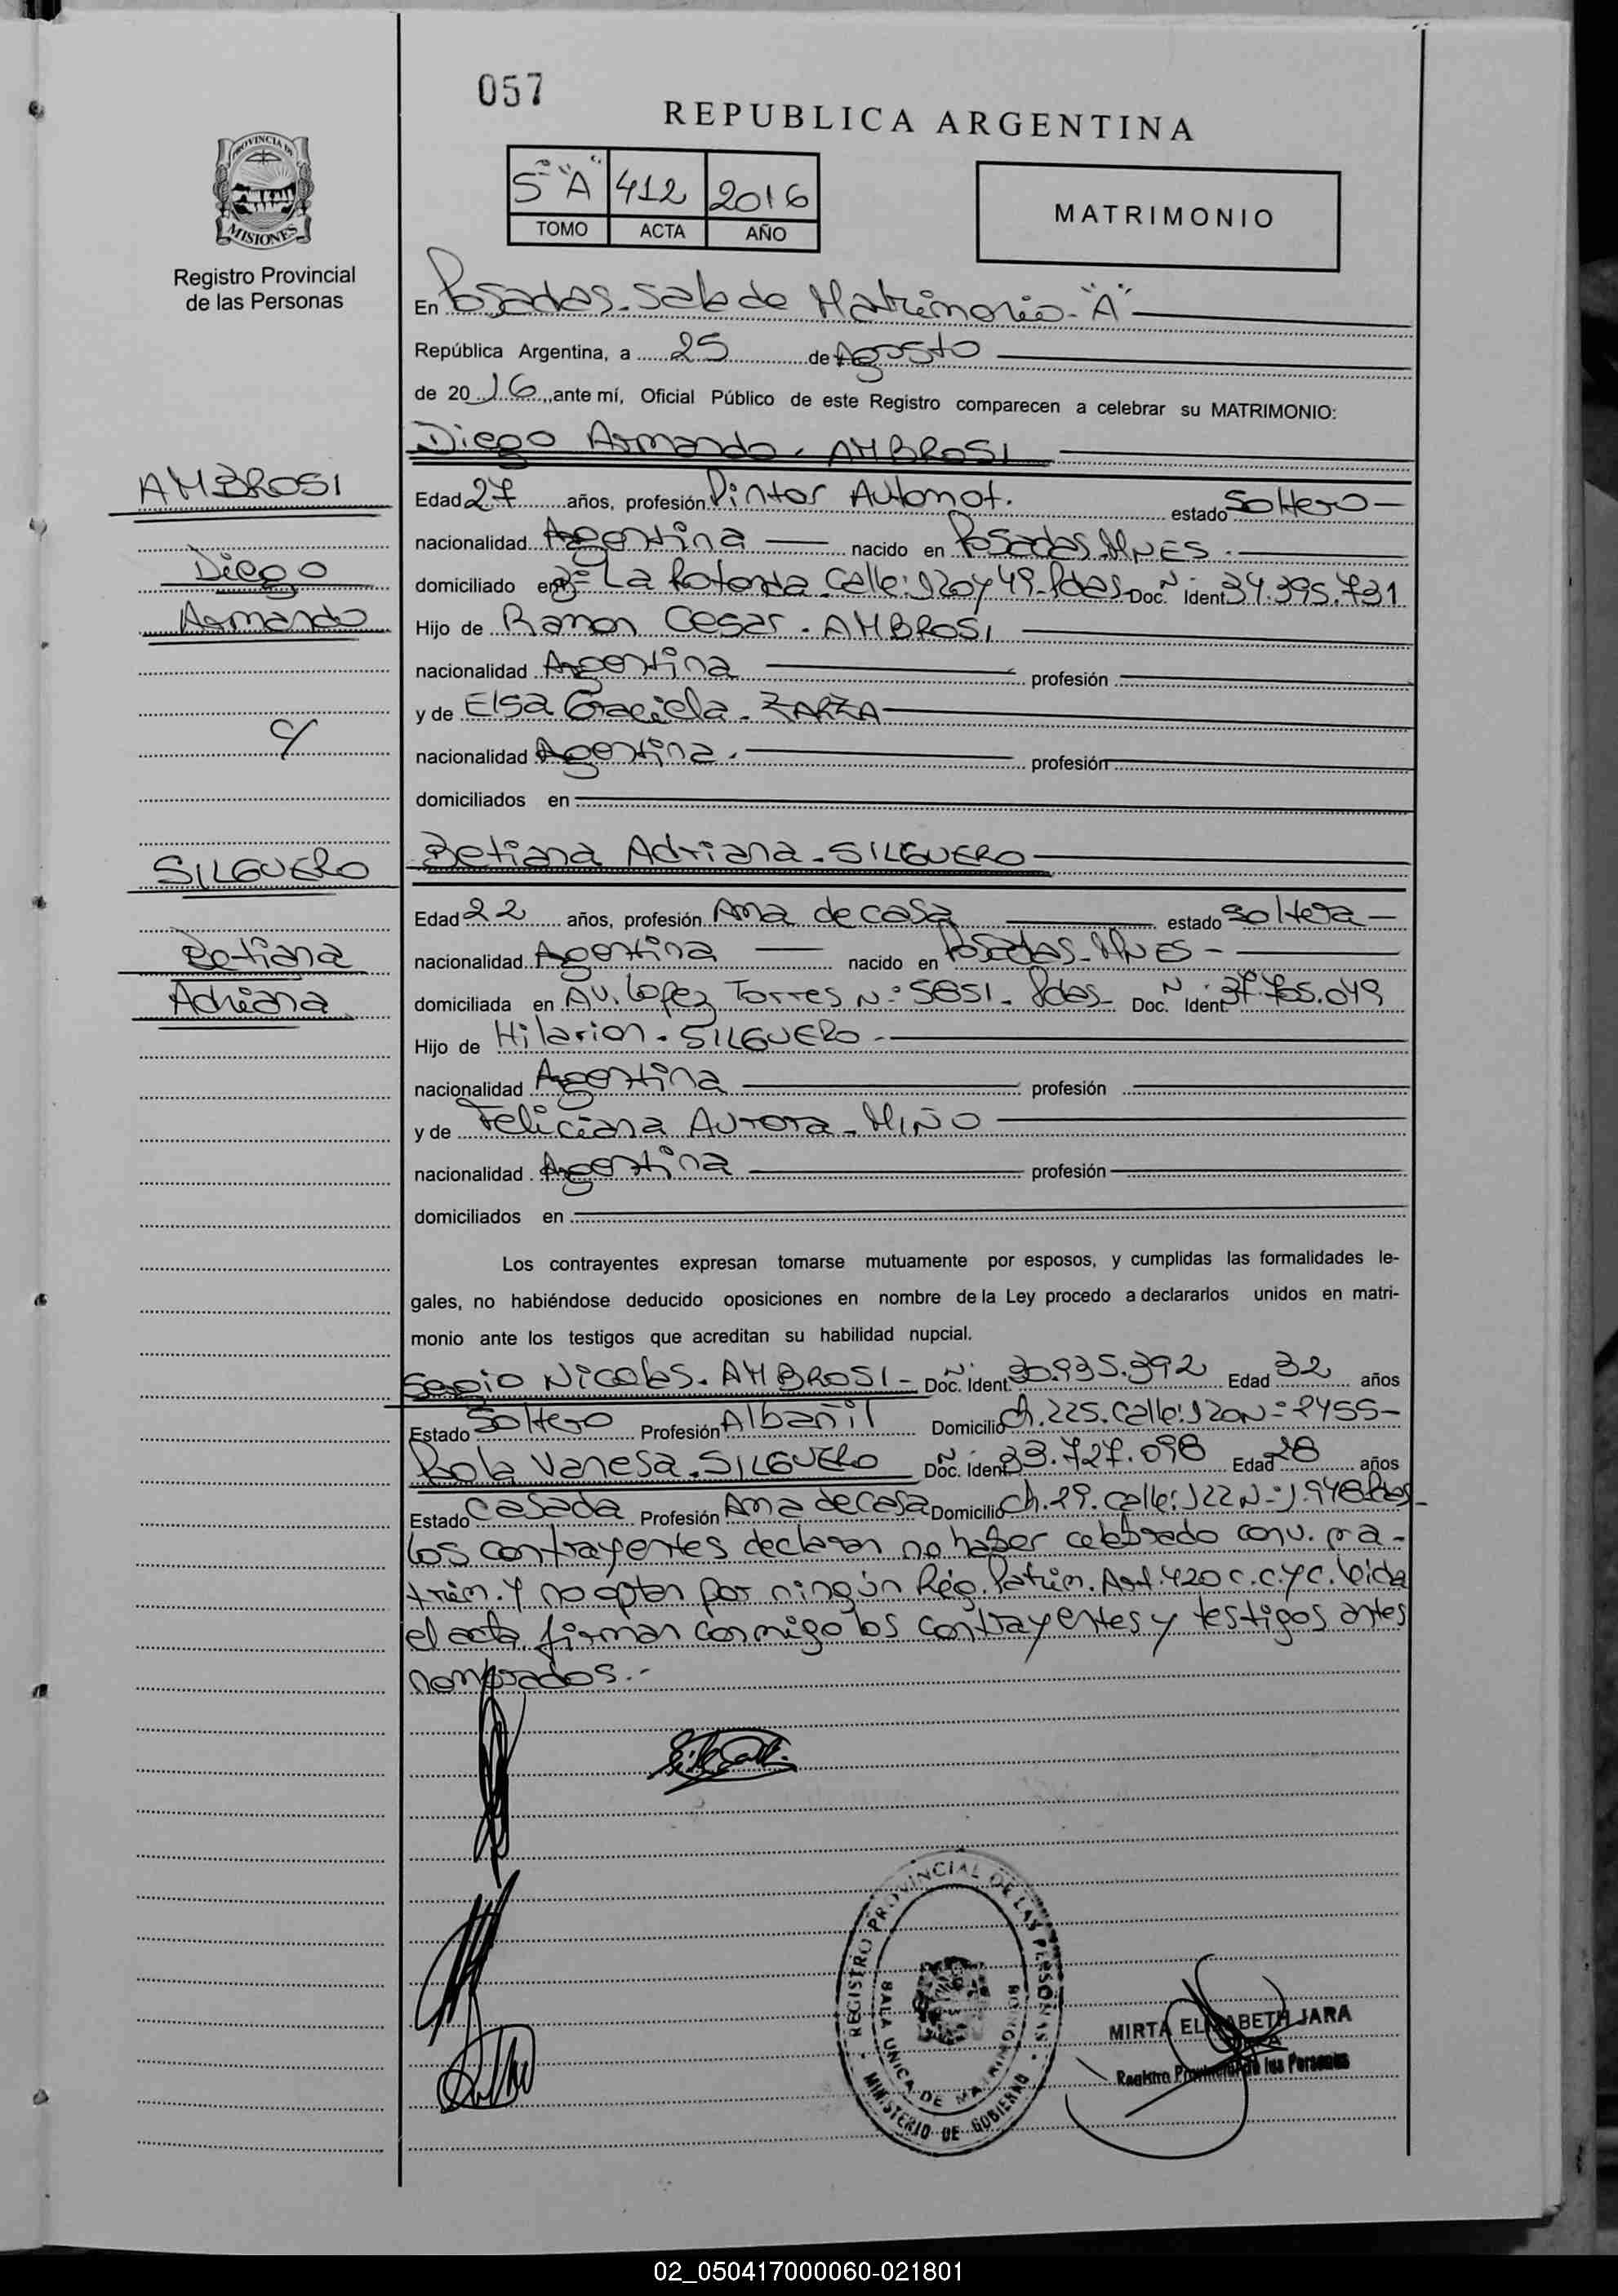 057
REPUBLICA ARGENTINA
5º "A" 412 2016
TOMO ACTA AÑO
MATRIMONIO
PROVINCIA DE
MISIONES
Registro Provincial
de las Personas
En Posadas. Sala de Matrimonio - "A"
República Argentina, a 25 de Agosto
de 2016, ante mí, Oficial Público de este Registro comparecen a celebrar su MATRIMONIO:
Diego Armando - AMBROSI
AMBROSI
Diego
Armando
c/
SILGUERO
Betiana
Adriana
Edad 27 años, profesión Pintor Automot. estado Soltero
nacionalidad Argentina nacido en Posadas. Mnes.
domiciliado en La Rotonda. Calle: 120 y 49 - Pdas - Doc. Nº Ident 34.395.731
Hijo de Ramon Cesar - AMBROSI
nacionalidad Argentina profesión
y de Elsa Graciela - ZARZA
nacionalidad Argentina. profesión
domiciliados en
Betiana Adriana - SILGUERO
Edad 22 años, profesión Ama de casa estado Soltera
nacionalidad Argentina nacido en Posadas - Mnes -
domiciliada en Av. Lopez Torres Nº 5851 - Pdas - Doc. Nº Ident 37.705.049
Hijo de Hilarion - SILGUERO -
nacionalidad Argentina profesión
y de Feliciana Aurora - MIÑO
nacionalidad Argentina profesión
domiciliados en
Los contrayentes expresan tomarse mutuamente por esposos, y cumplidas las formalidades le-
gales, no habiéndose deducido oposiciones en nombre de la Ley procedo a declararlos unidos en matri-
monio ante los testigos que acreditan su habilidad nupcial.
Sergio Nicolas - AMBROSI - Doc. Nº Ident 30.935.392 Edad 32 años
Estado Soltero Profesión Albañil Domicilio Ch. 225. Calle: 120 Nº 2455 -
Rola Vanesa - SILGUERO Doc. Nº Ident 33.727.098 Edad 28 años
Estado Casada Profesión Ama de casa Domicilio Ch. 29. Calle: 122 Nº 1.948 Pdas -
los contrayentes declaran no haber celebrado conv. ma-
trim. y no optan por ningún Rég. Patrim. Art. 420 C.C.yC. leída
el acta firman conmigo los contrayentes y testigos antes
nombrados. -
REGISTRO PROVINCIAL DE LAS PERSONAS
SALA UNICA DE MATRIMONIOS
MINISTERIO DE GOBIERNO
MIRTA ELIZABETH JARA
Registro Provincial de las Personas
02_050417000060-021801